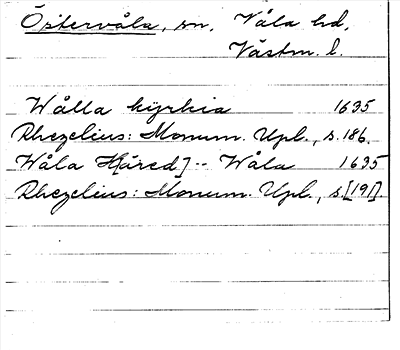 Östervåla, sn. Våla hd,
Västm. l.
Wålla kyrkia 1635
Rhezelius: Monum. Upl., s. 186.
Wåla H[äred] -- Wåla 1635
Rhezelius: Monum. Upl., s. [191].